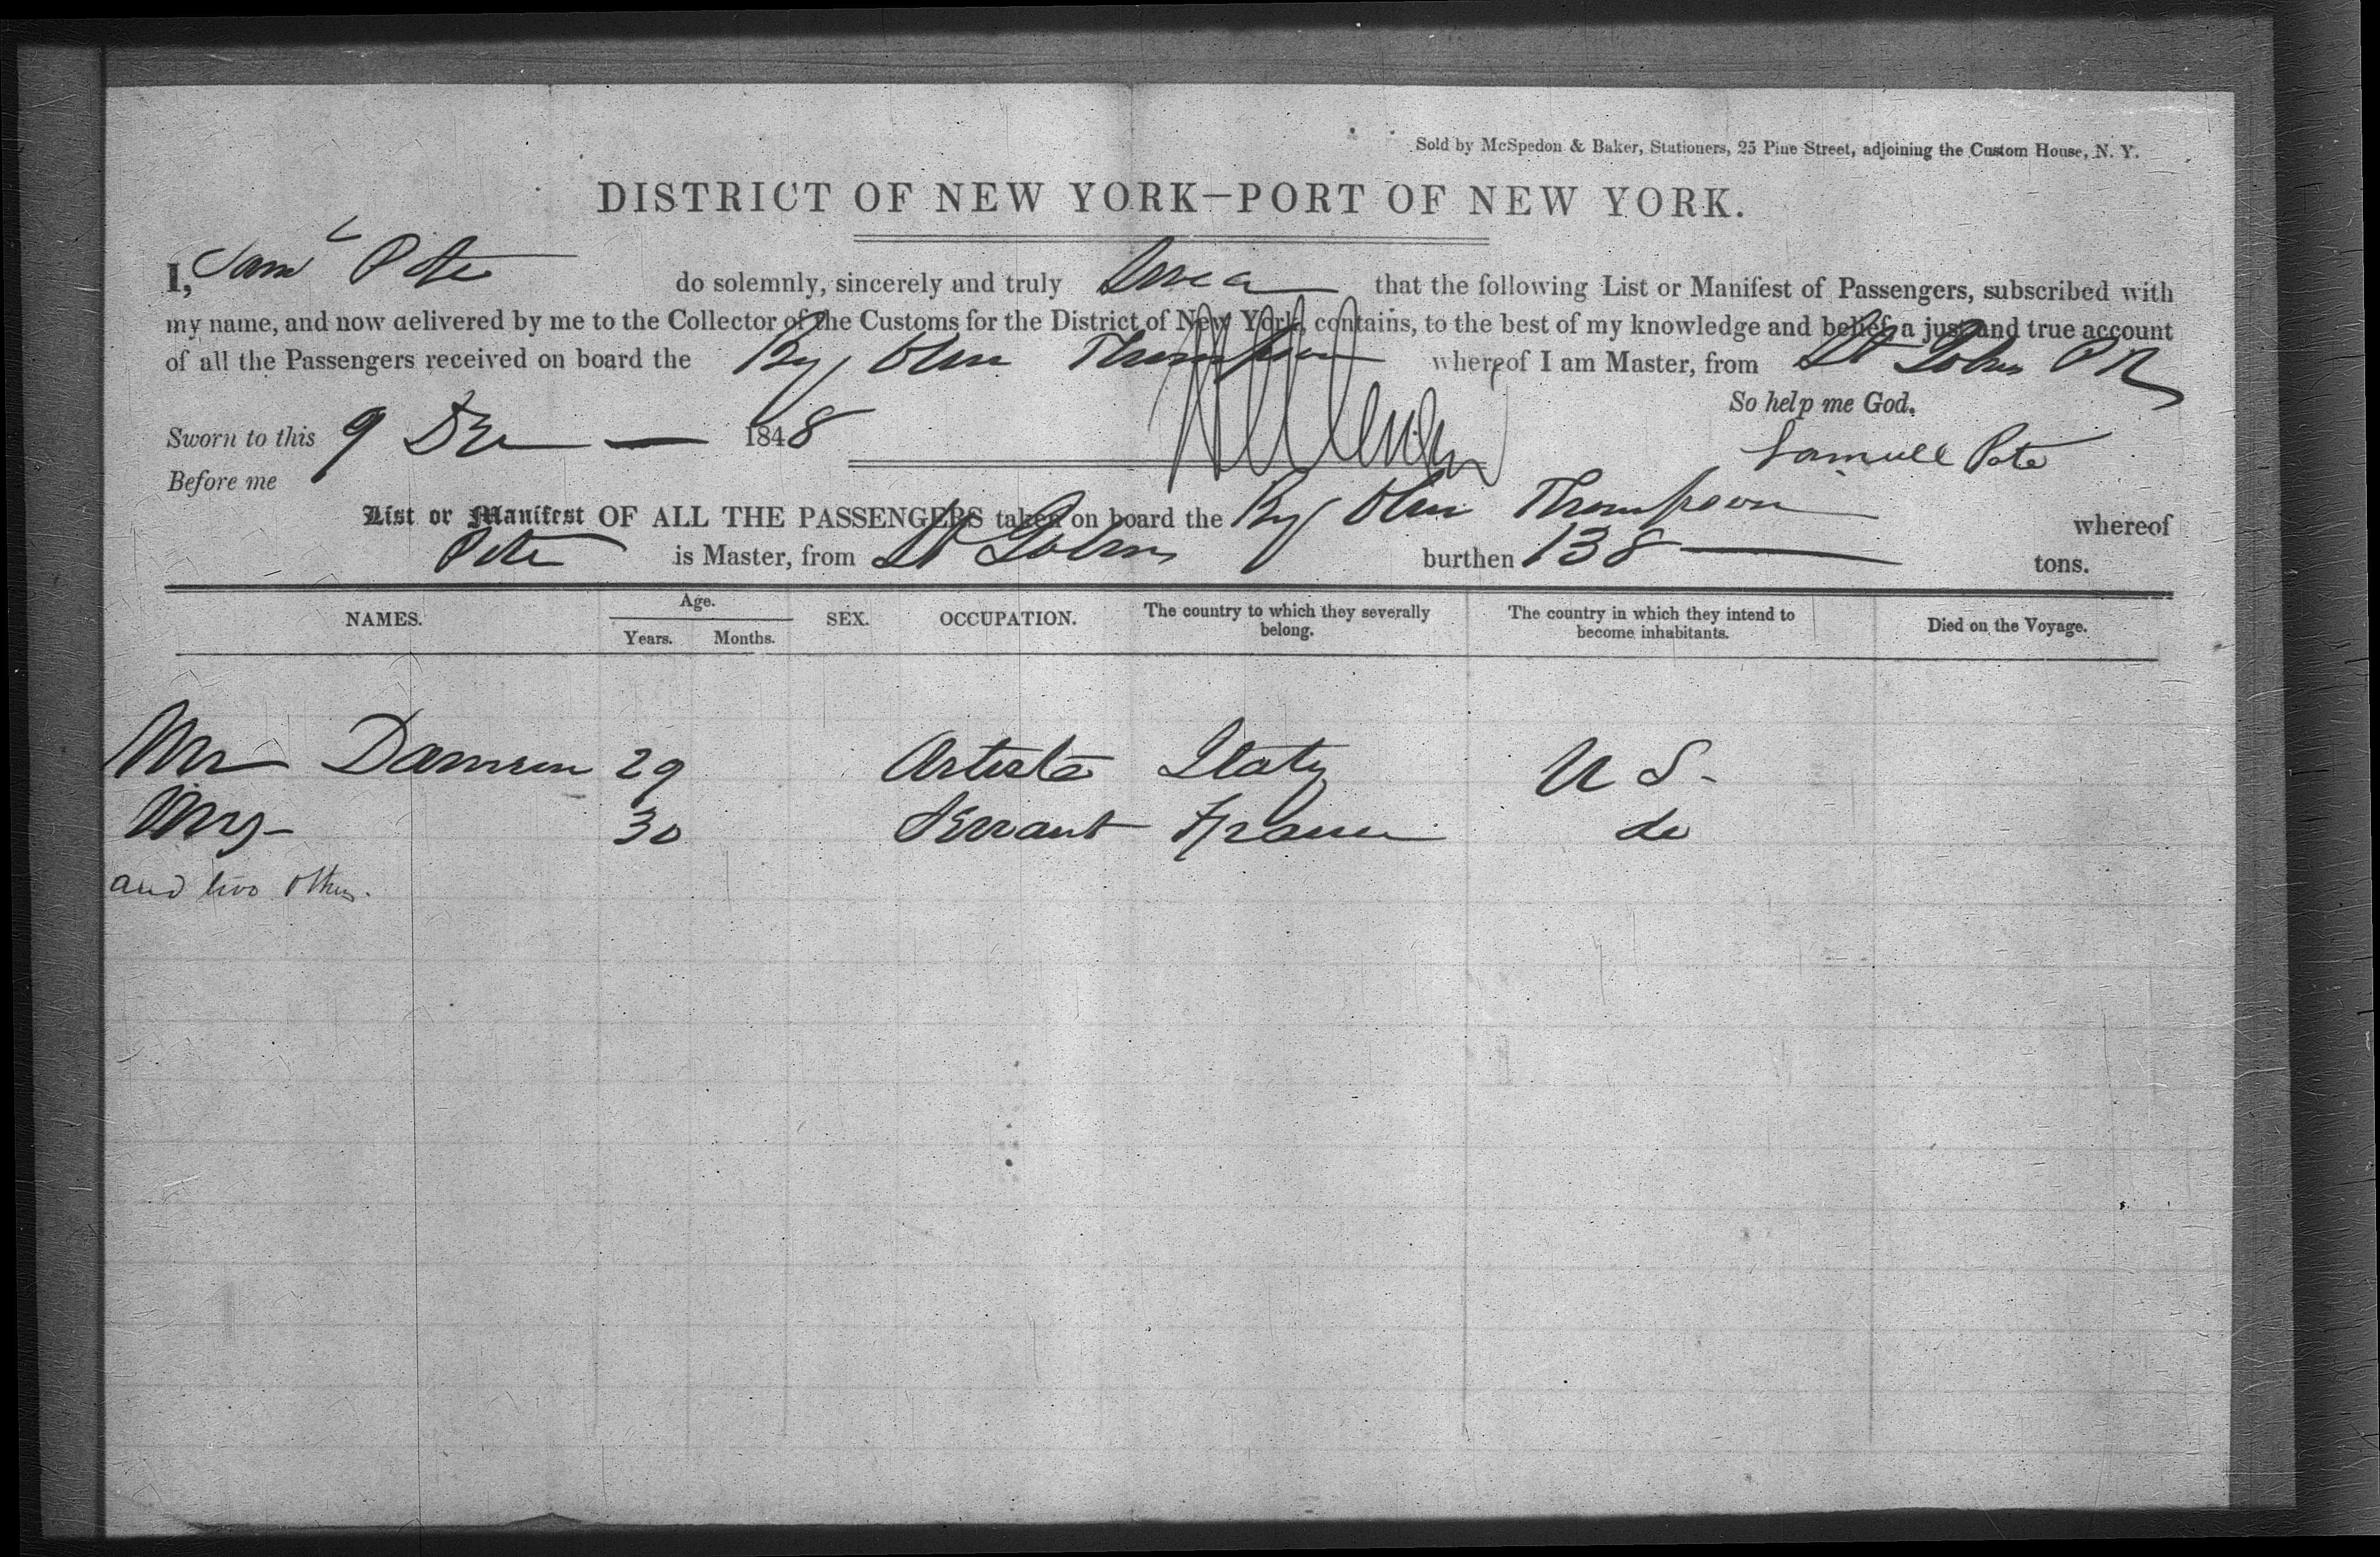 Sold by McSpedon & Baker, Stationers, 25 Pine Street, adjoining the Custom House, N. Y.
DISTRICT OF NEW YORK—PORT OF NEW YORK.
I, Saml Pote do solemnly, sincerely and truly Swear that the following List or Manifest of Passengers, subscribed with
my name, and now delivered by me to the Collector of the Customs for the District of New York, contains, to the best of my knowledge and belief, a just and true account
of all the Passengers received on board the Brig Thompson whereof I am Master, from St Johns P R
So help me God.
Sworn to this 9 Dec 1848
Samuell Pote
Before me
List or Manifest OF ALL THE PASSENGERS taken on board the Brig Thompson whereof
Pote is Master, from St Johns burthen 138 tons.
NAMES. Age. Years. Months. SEX. OCCUPATION. The country to which they severally belong. The country in which they intend to become inhabitants. Died on the Voyage.
Mr 29 Artiste Italy U S-
30 Servant France do
and two others.